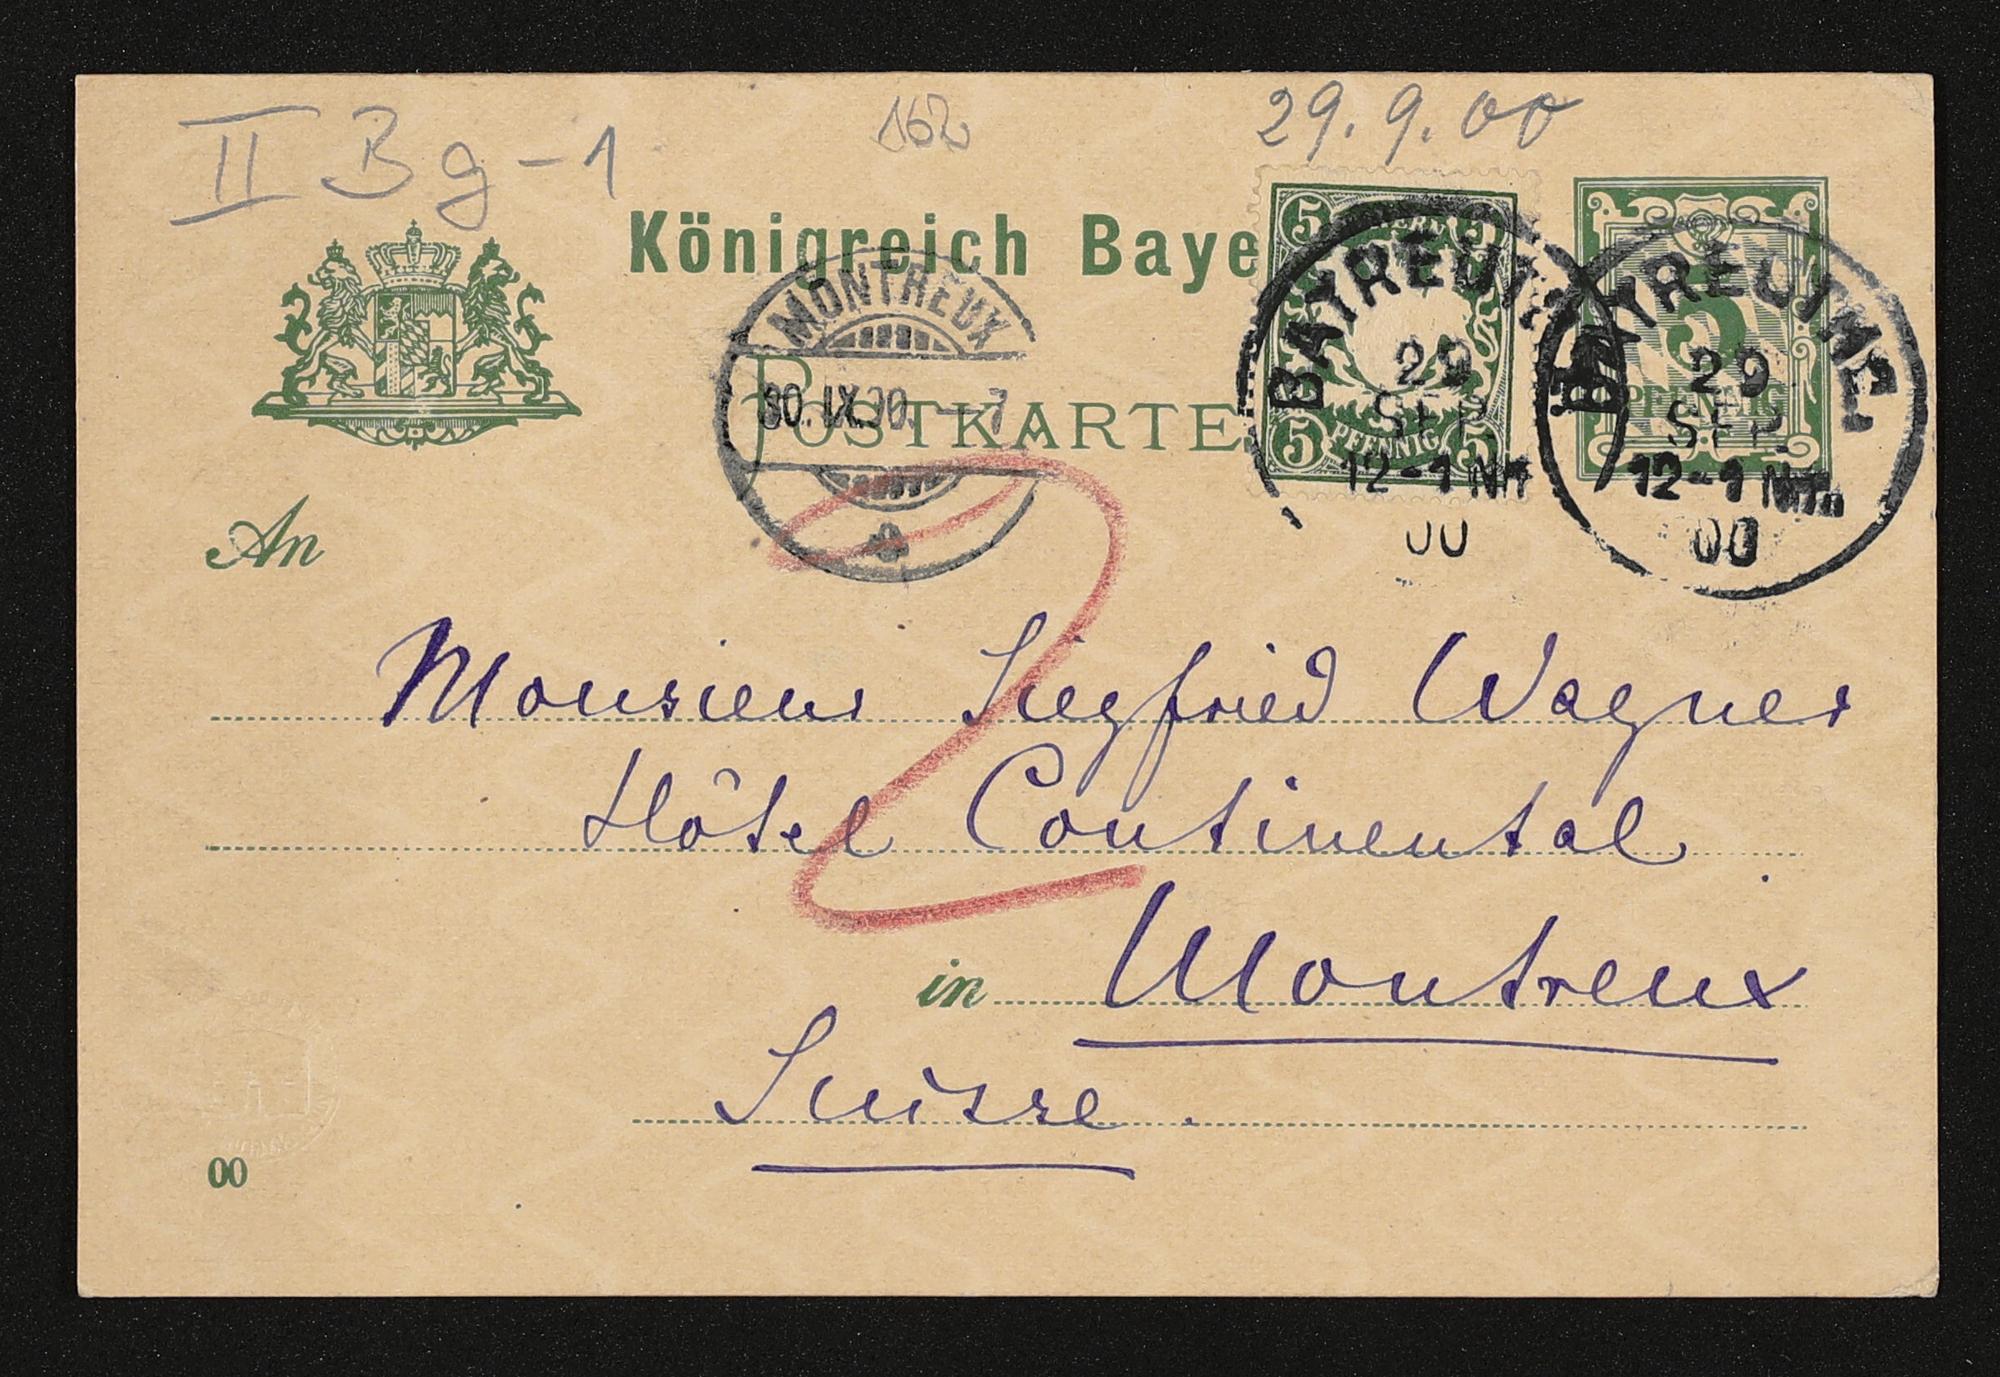 II Bg-1
162
29.9.00
Königreich Baye
5 5
5 PFENNIG 5
3
PFENNIG
BAYREUTH
29
SEP.
12-1 Nm
00
BAYREUTH
29
SEP.
12-1 Nm
00
MONTREUX
30.IX.00.-7
POSTKARTE
An
Monsieur Siegfried Wagner
Hôtel Continental
in Montreux
Suisse.
00